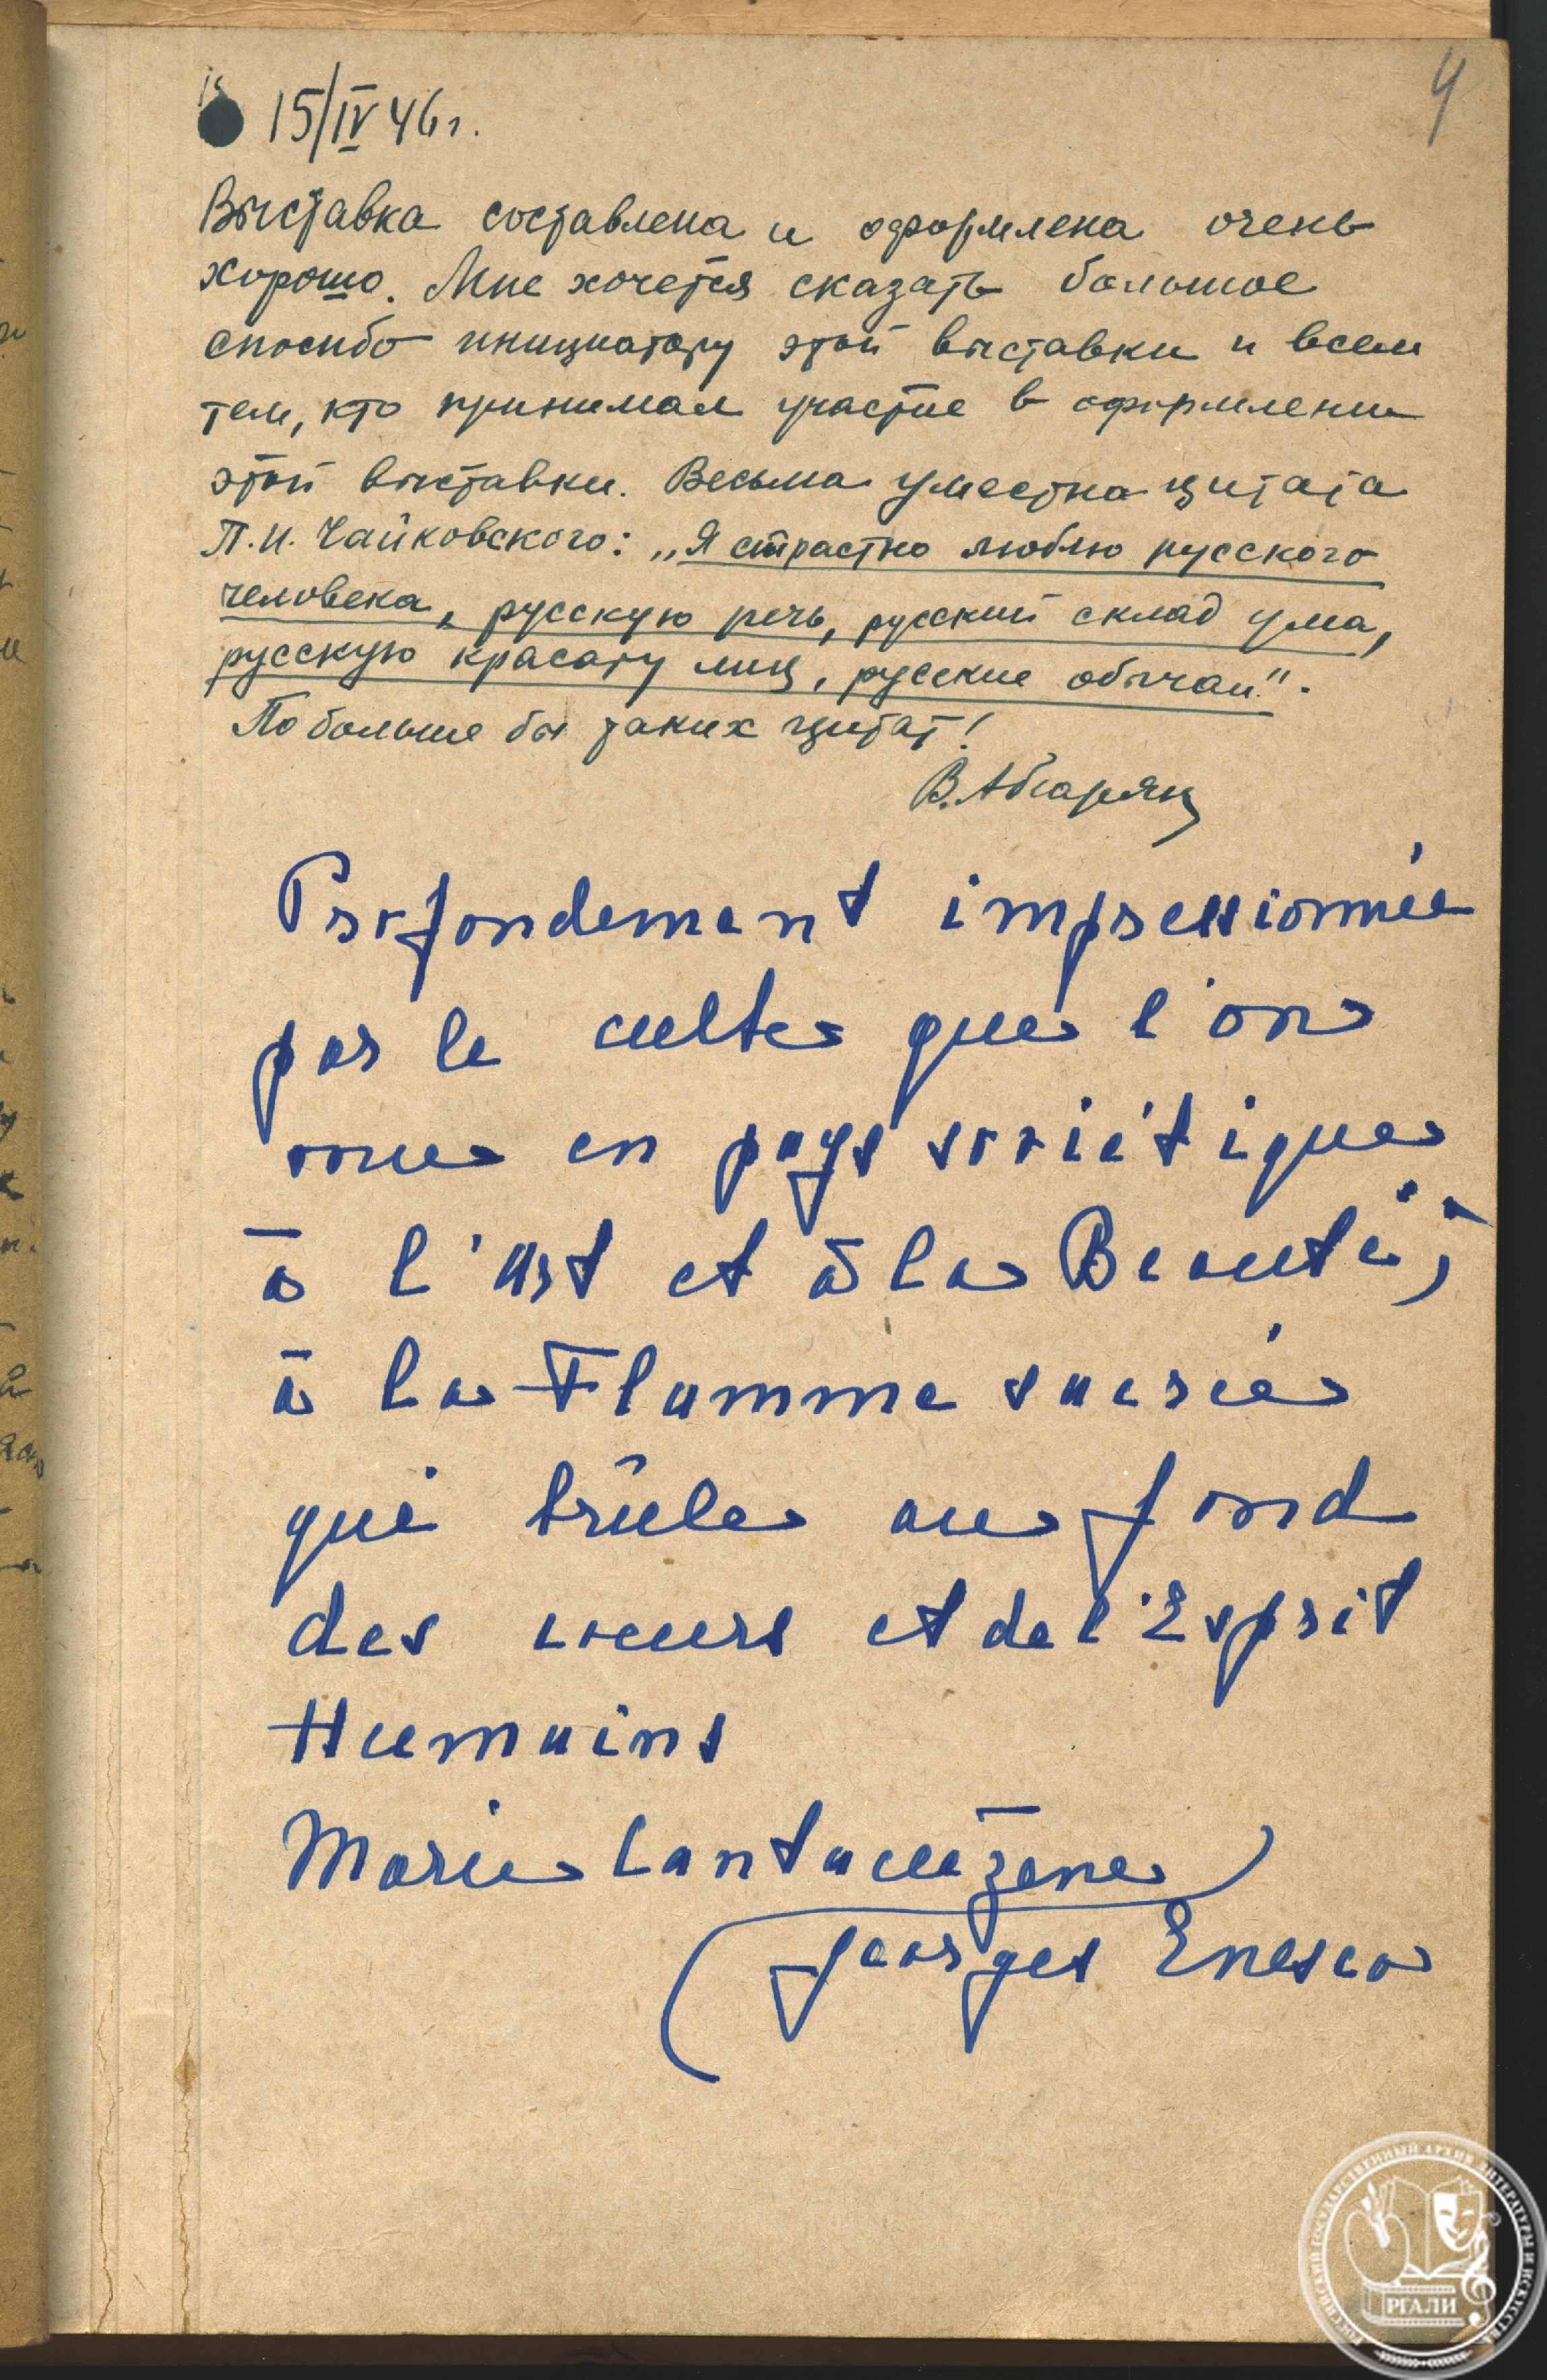 4
15/IV 46 г.
Выставка составлена и оформлена очень
хорошо. Мне хочется сказать большое
спосибо инициатору этой выставки и всем
тем, кто принимал участие в оформлении
этой выставки. Весьма уместна цитата
П.И. Чайковского: „Я страстно люблю русского
человека, русскую речь, русский склад ума,
русскую красоту лиц, русские обычаи".
Побольше бы таких цитат!
В. Абгарянц
Profondement impressionnée
par le culte que l'on
voue en pays soviétique
à l'Art et à la Beauté,
à la Flamme sacrée
qui brûle au fond
des coeurs et de l'Esprit
Humains
Marie Cantacuzène
Georges Enesco
РОССИЙСКИЙ ГОСУДАРСТВЕННЫЙ АРХИВ ЛИТЕРАТУРЫ И ИСКУССТВА
РГАЛИ